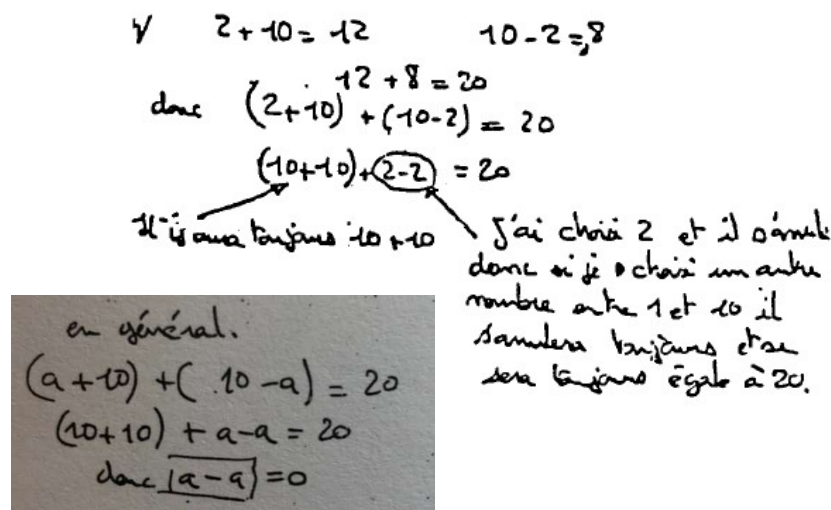 2 + 10 = 12 10 - 2 = 8
12 + 8 = 20
donc (2+10) + (10-2) = 20
(10+10) + 2-2 = 20
Il y aura toujours 10 + 10
J'ai choisi 2 et il s'annule
donc si je choisi un autre
nombre entre 1 et 10 il
s'anulera toujours et se
sera toujours égale à 20.
en général.
(a + 10) + ( 10 - a) = 20
(10 + 10) + a - a = 20
donc a - a = 0